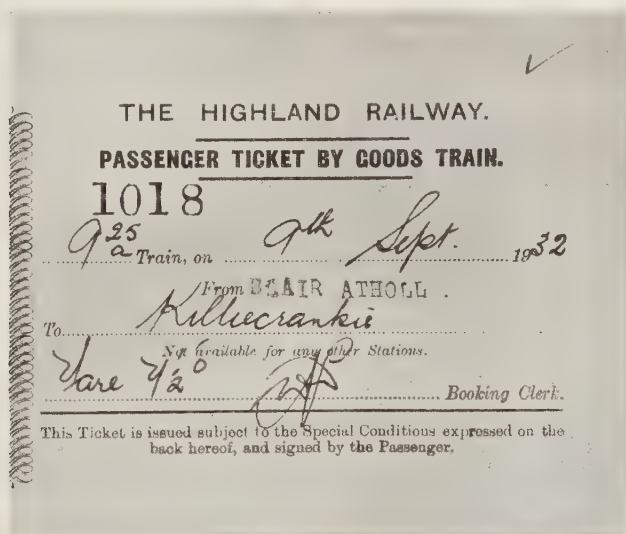 THE HIGHLAND RAILWAY.
PASSENGER TICKET BY GOODS TRAIN.
1018
9 25 a Train, on 9th Sept. 1932
From BLAIR ATHOLL.
To Killiecrankie
Not available for any other Stations.
Fare Booking Clerk.
This Ticket is issued subject to the Special Conditions expressed on the
back hereof, and signed by the Passenger.